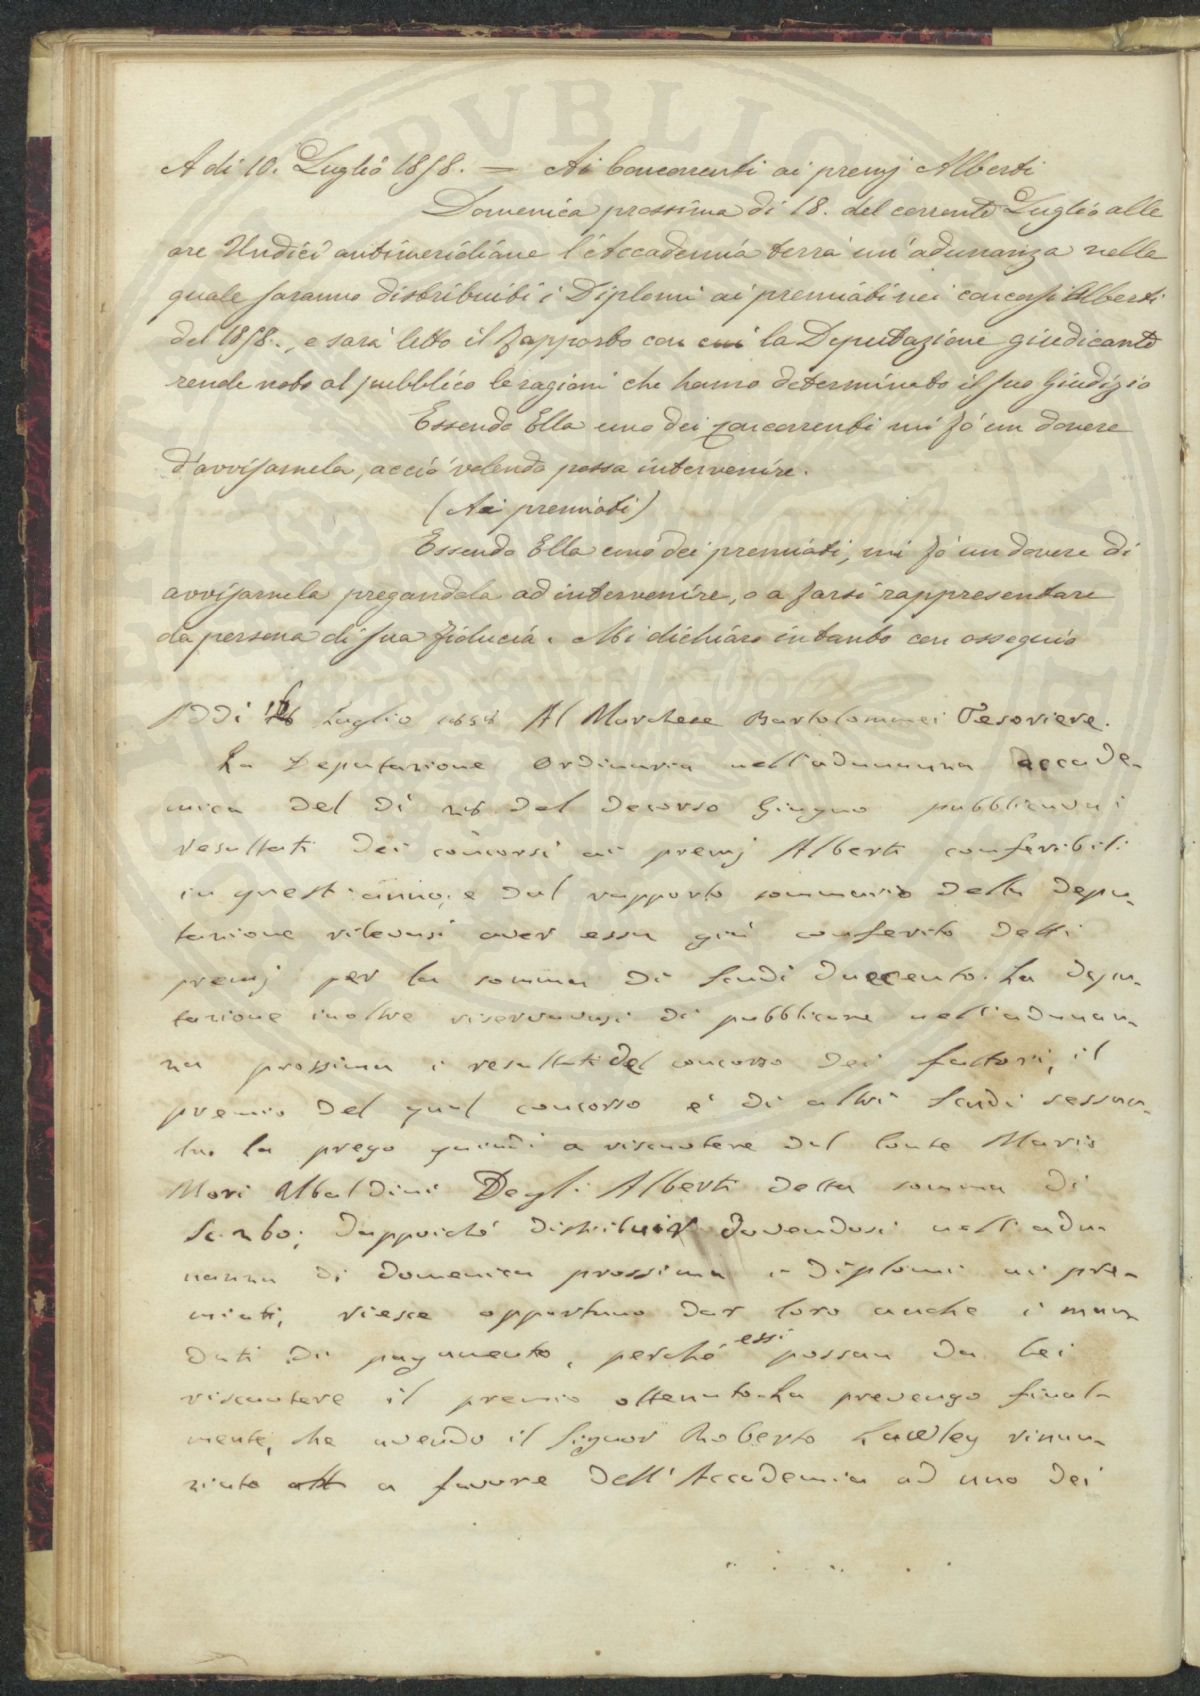 A dì 10. Luglio 1858. = Ai Concorrenti ai premj Alberti
Domenica prossima dì 18. del corrente Luglio alle
ore Undici antimeridiane l'Accademia terrà un'adunanza nella
quale saranno distribuiti i Diplomi ai premiati nei concorsi Alberti
del 1858., e sarà letto il rapporto con cui la Deputazione giudicante
rende noto al pubblico le ragioni che hanno determinato il suo Giudizio
Essendo Ella uno dei concorrenti mi fò un dovere
d'avvisarnela, acciò volendo possa intervenire.
(Ai premiati)
Essendo Ella uno dei premiati, mi fò un dovere di
avvisarnela pregandola ad intervenire, o a farsi rappresentare
da persona di sua fiducia. Mi dichiaro intanto con ossequio
Addì Luglio 1858 Al Marchese Bartolommei Tesoriere.
La Deputazione Ordinaria nell'adunanza accade-
mica del dì del decorso Giugno pubblicava i
resultati dei concorsi ai premj Alberti conferibili
in quest'anno; e dal rapporto sommario della depu-
tazione rilevasi aver essa già conferito detti
premj per la somma di Scudi duecento. La depu-
tazione inoltre riservavasi di pubblicare nell'adunan-
za prossima i resultati del concorso dei fattori, il
premio del qual concorso è di altri Scudi sessan-
ta. La prego quindi a riscuotere dal Conte Mario
Mori Ubaldini Degli Alberti detta somma di
dappoiché distribuir dovendosi nell'adu-
nanza di domenica prossima i diplomi ai pre-
miati, riesce opportuno dar loro anche i man
dati di pagamento, perché essi possan da Lei
riscuotere il premio ottenuto. La prevengo final-
mente, che avendo il Signor Roberto Lawley rinun-
ziato a favore dell'Accademia ad uno dei